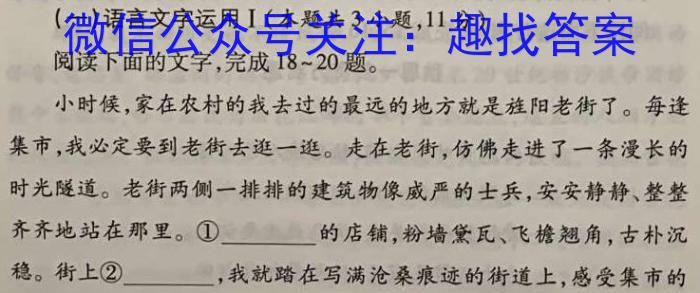 (一)语言文字运用Ⅰ(本题共3小题,11分)
微信公众号关注：趣找答案
阅读下面的文字,完成18~20题。
小时候,家在农村的我去过的最远的地方就是旌阳老街了。每逢
集市,我必定要到老街去逛一逛。走在老街,仿佛走进了一条漫长的
时光隧道。老街两侧一排排的建筑物像威严的士兵,安安静静、整整
齐齐地站在那里。①________的店铺,粉墙黛瓦、飞檐翘角,古朴沉
稳。街上②________,我就踏在写满沧桑痕迹的街道上,感受集市的